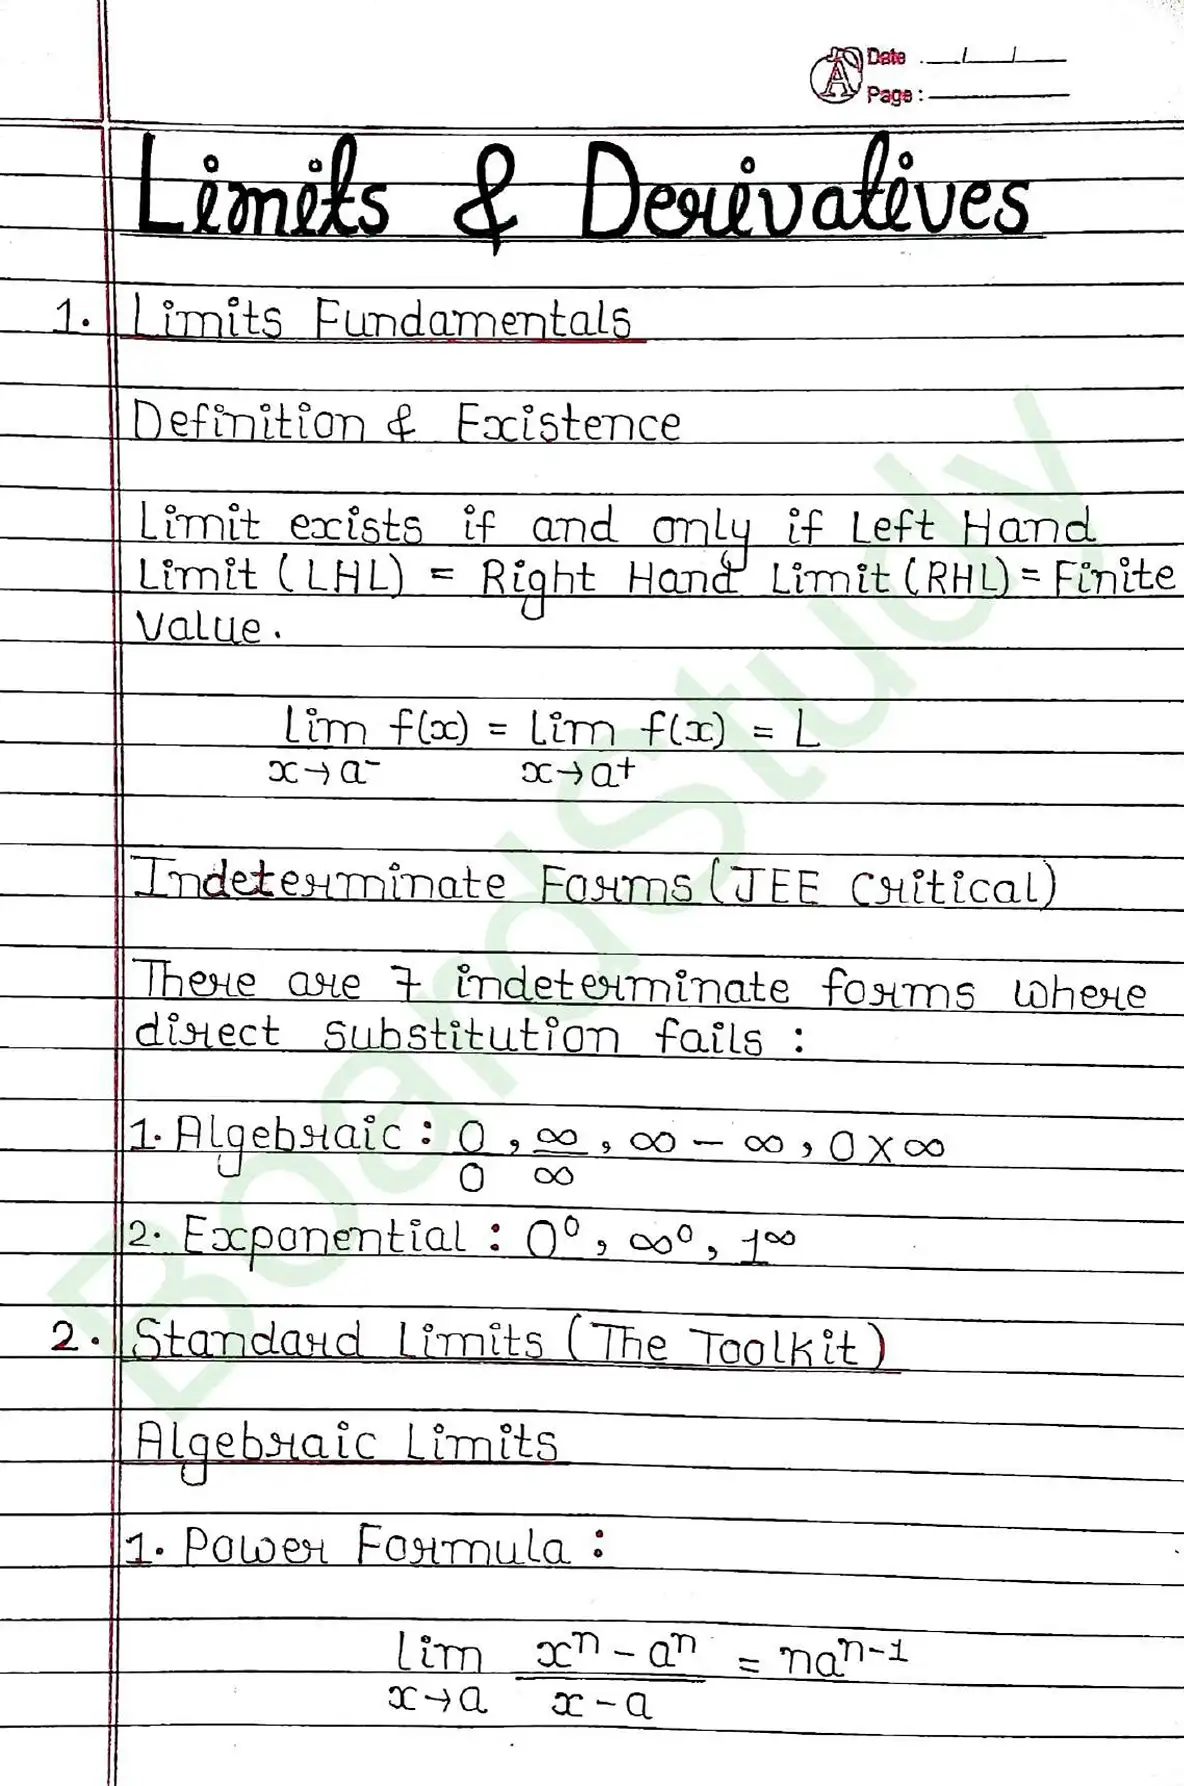 Date : __/__/__
Page :
Limits & Derivatives
1. Limits Fundamentals
Definition & Existence
Limit exists if and only if Left Hand
Limit (LHL) = Right Hand Limit (RHL) = Finite
Value.
lim f(x) = lim f(x) = L
x→a⁻ x→a⁺
Indeterminate Forms (JEE Critical)
There are 7 indeterminate forms where
direct substitution fails :
1. Algebraic : 0/0, ∞/∞, ∞ - ∞, 0 × ∞
2. Exponential : 0⁰, ∞⁰, 1^∞
2. Standard Limits (The Toolkit)
Algebraic Limits
1. Power Formula :
lim xⁿ - aⁿ = naⁿ⁻¹
x→a x - a
BoardStudy